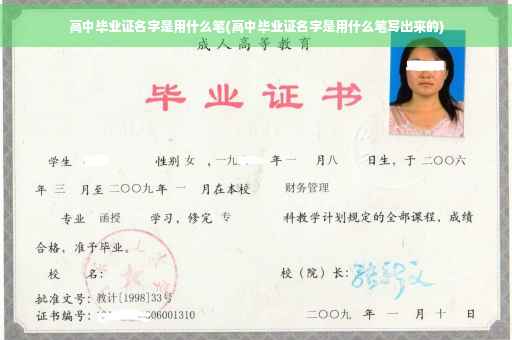 高中毕业证名字是用什么笔(高中毕业证名字是用什么笔写出来的)
成人高等教育
毕业证书
学生 性别 女 ，一九 年 一 月八 日生，于 二〇〇六
年 三 月至 二〇〇九 年 一 月在本校 财务管理
专业 函授 学习，修完 专 科教学计划规定的全部课程，成绩
合格，准予毕业。
校 名： 校（院）长：
批准文号：教计[1998]33号
证书编号： 06001310 二〇〇九 年 一 月 十 日